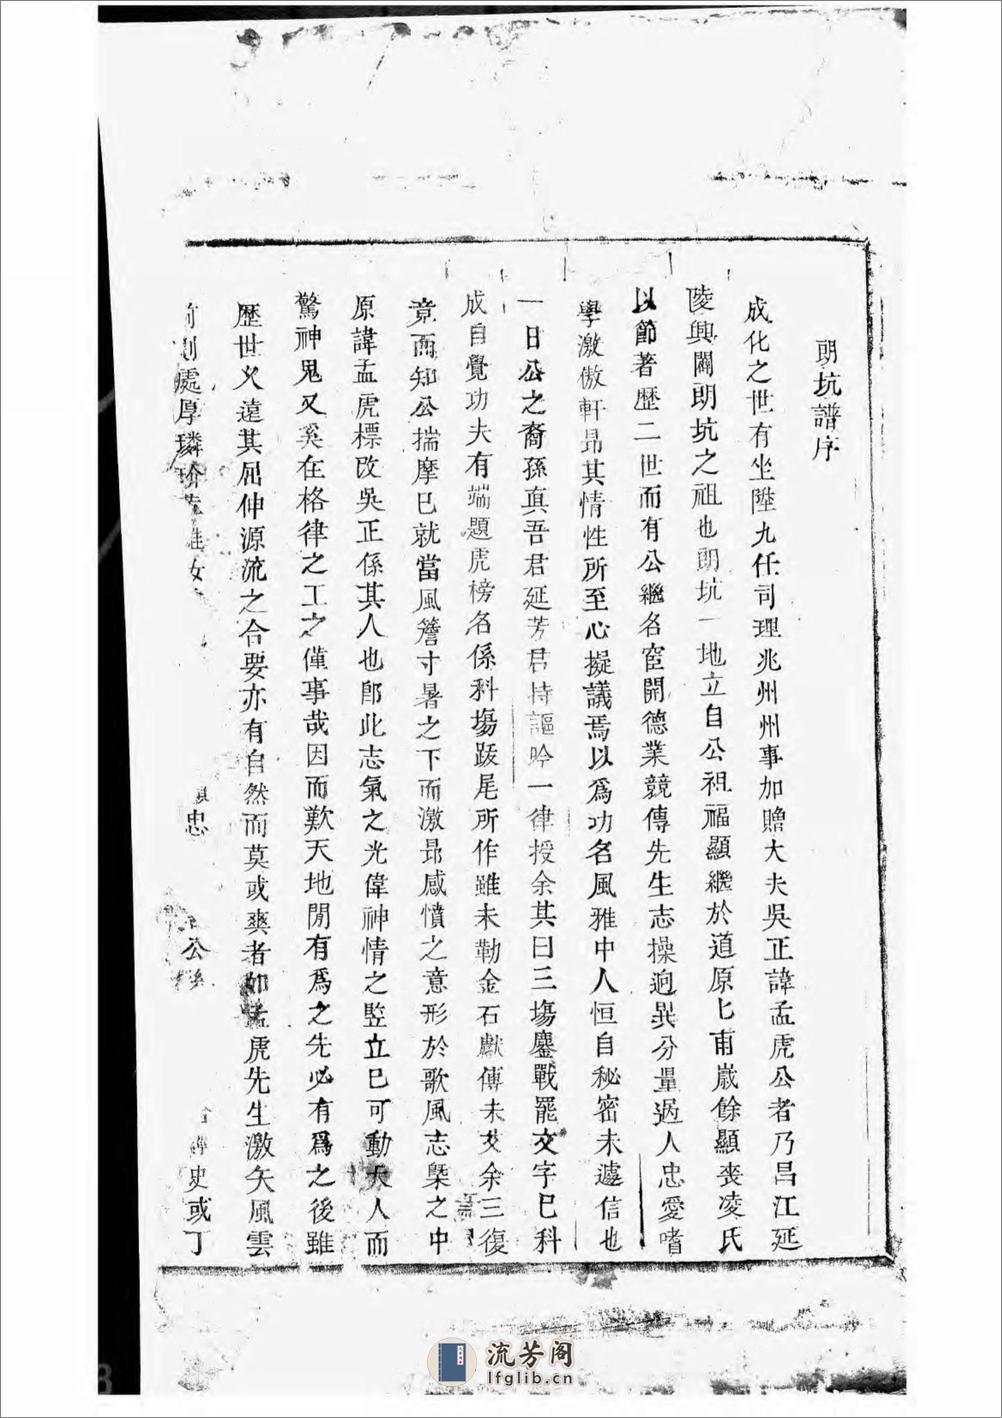 朗坑譜序
成化之世有坐陞九任司理兆州州事加贈大夫吳正諱孟虎公者乃昌江延
陵興闢朗坑之祖也朗坑一地立自公祖福顯繼於道原匕甫歲餘顯喪凌氏
以節著歷二世而有公繼名宦開德業競傳先生志操迥異分量過人忠愛嗜
學激傲軒昻其情性所至心擬議焉以爲功名風雅中人恒自秘密未遽信也
一日公之裔孫真吾君延芳君持謳吟一律授余其曰三塲鏖戰罷文字已科
成自覺功夫有端題虎榜名係科塲跋尾所作雖未勒金石獻傳未艾余三復
竟而知公揣摩已就當風簷寸暑之下而激昻感憤之意形於歌風志槩之中
原諱孟虎標改吳正係其人也卽此志氣之光偉神情之竪立已可動天人而
驚神鬼又奚在格律之工之僅事哉因而歎天地閒有爲之先必有爲之後雖
歷世久遠其屈伸源流之合要亦有自然而莫或爽者如孟虎先生激矢風雲
前則處厚璘 忠 公 史或丁
流芳阁
lfglib.cn